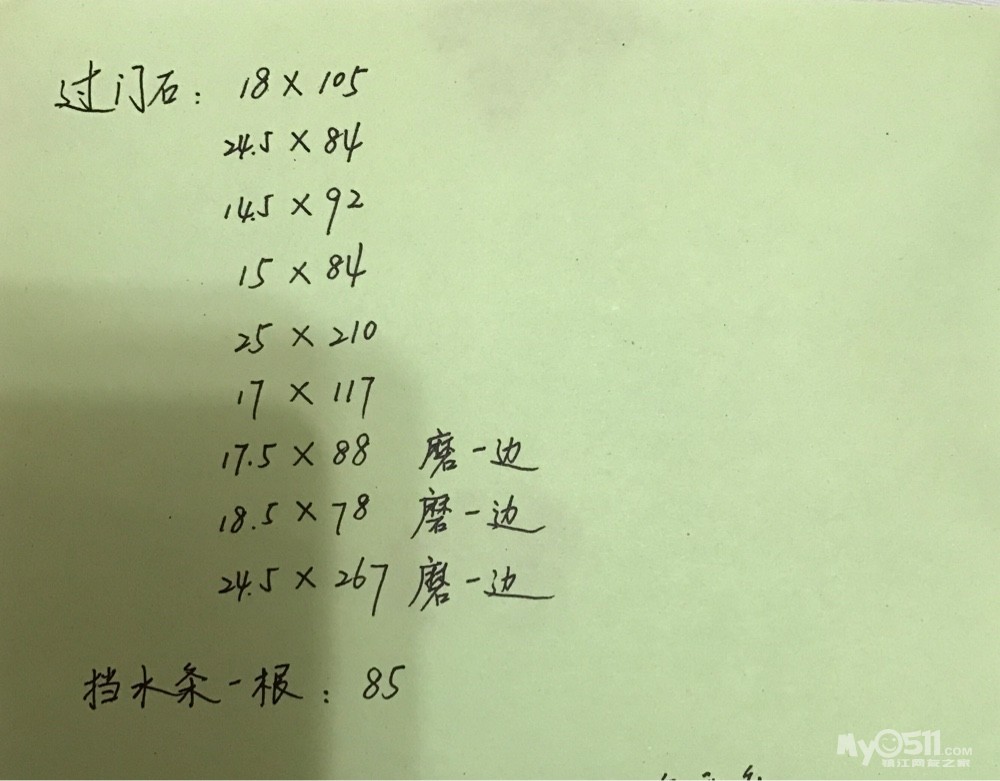 过门石：18×105
24.5×84
14.5×92
15×84
25×210
17×117
17.5×88 磨一边
18.5×78 磨一边
24.5×267 磨一边
挡水条一根：85
My0511.COM
镇江网友之家